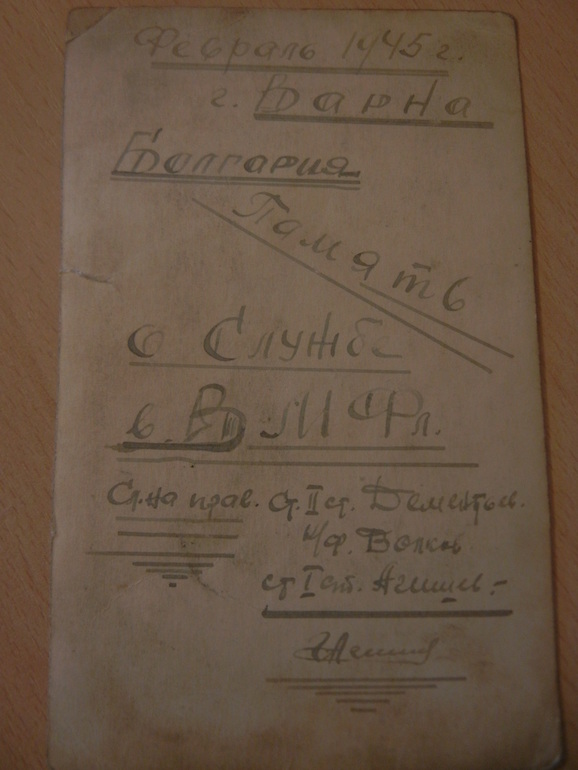 Февраль 1945 г.
г. Варна
Болгария
Память
о Служб
в В М Фл.
Ст. на прав. Ст. II ст. Дементьев.
Волков
ст I ст. Агишев. -